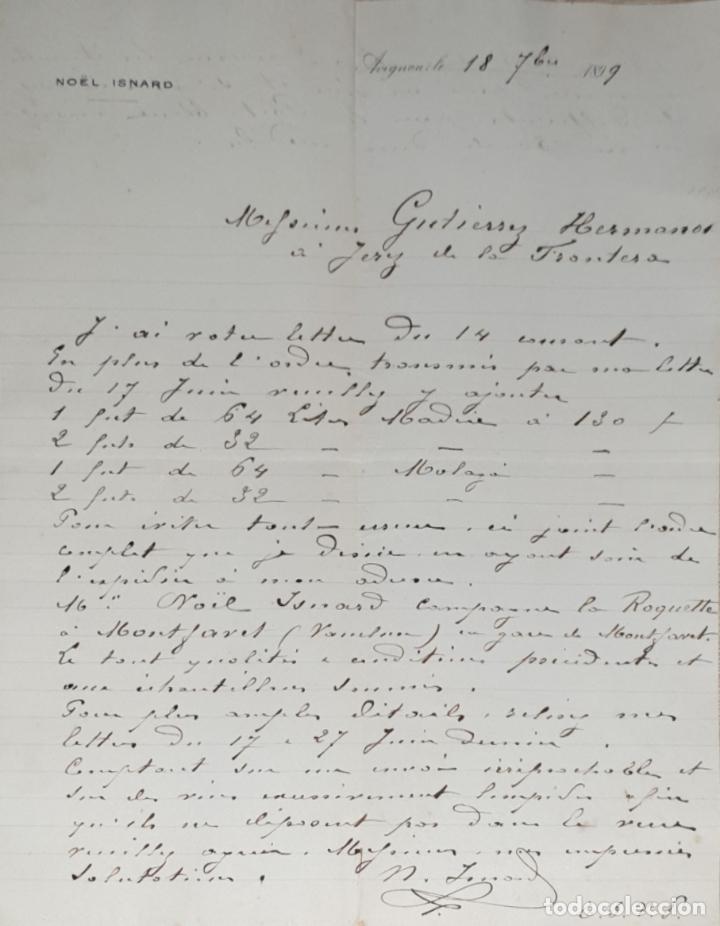 NOËL. ISNARD
Avignon, le 18 7bre 1899
Messieurs Gutierrez Hermanos
à Jerez de la Frontera
J'ai votre lettre du 14 courant.
En plus de l'ordre, transmis par ma lettre
du 17 Juin veuillez y ajouter
1 fut de 64 Litres Madère à 130 f
2 futs de 32 – – –
1 fut de 64 – Malaga –
2 futs de 32 – – –
Pour éviter toute erreur, ci joint l'ordre
complet que je désire en ayant soin de
l'expédier à mon adresse.
Mr. Noël Isnard campagne la Roquette
à Montfavet (Vaucluse) en gare de Montfavet.
Le tout qualités & conditions précédentes et
aux échantillons soumis.
Pour plus amples détails, relisez mes
lettres du 17 & 27 Juin dernier.
Comptant sur un envoi irréprochable et
sur des vins excessivement limpides afin
qu'ils ne déposent pas dans le verre
veuillez agréer, Messieurs, mes empressées
salutations.
N. Isnard
todocoleccion
todocoleccion.net